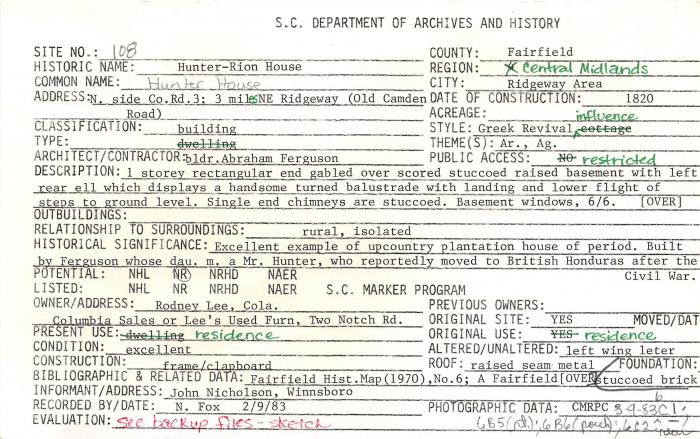 S.C. DEPARTMENT OF ARCHIVES AND HISTORY
SITE NO.: 108 COUNTY: Fairfield
HISTORIC NAME: Hunter-Rion House REGION: Central Midlands
COMMON NAME: Hunter House CITY: Ridgeway Area
ADDRESS: N. side Co.Rd.3; 3 miles NE Ridgeway (Old Camden DATE OF CONSTRUCTION: 1820
Road) ACREAGE:
CLASSIFICATION: building STYLE: Greek Revival influence cottage
TYPE: dwelling THEME(S): Ar., Ag.
ARCHITECT/CONTRACTOR: bldr.Abraham Ferguson PUBLIC ACCESS: NO restricted
DESCRIPTION: 1 storey rectangular end gabled over scored stuccoed raised basement with left
rear ell which displays a handsome turned balustrade with landing and lower flight of
steps to ground level. Single end chimneys are stuccoed. Basement windows, 6/6. [OVER]
OUTBUILDINGS:
RELATIONSHIP TO SURROUNDINGS: rural, isolated
HISTORICAL SIGNIFICANCE: Excellent example of upcountry plantation house of period. Built
by Ferguson whose dau. m. a Mr. Hunter, who reportedly moved to British Honduras after the
Civil War.
POTENTIAL: NHL NR NRHD NAER
LISTED: NHL NR NRHD NAER S.C. MARKER PROGRAM
OWNER/ADDRESS: Rodney Lee, Cola. PREVIOUS OWNERS:
Columbia Sales or Lee's Used Furn, Two Notch Rd. ORIGINAL SITE: YES MOVED/DAT
PRESENT USE: dwelling residence ORIGINAL USE: YES residence
CONDITION: excellent ALTERED/UNALTERED: left wing leter
CONSTRUCTION: frame/clapboard ROOF: raised seam metal FOUNDATION:
BIBLIOGRAPHIC & RELATED DATA: Fairfield Hist.Map(1970),No.6; A Fairfield[OVER stuccoed brick
INFORMANT/ADDRESS: John Nicholson, Winnsboro
RECORDED BY/DATE: N. Fox 2/9/83 PHOTOGRAPHIC DATA: CMRPC
EVALUATION: See backup files - sketch